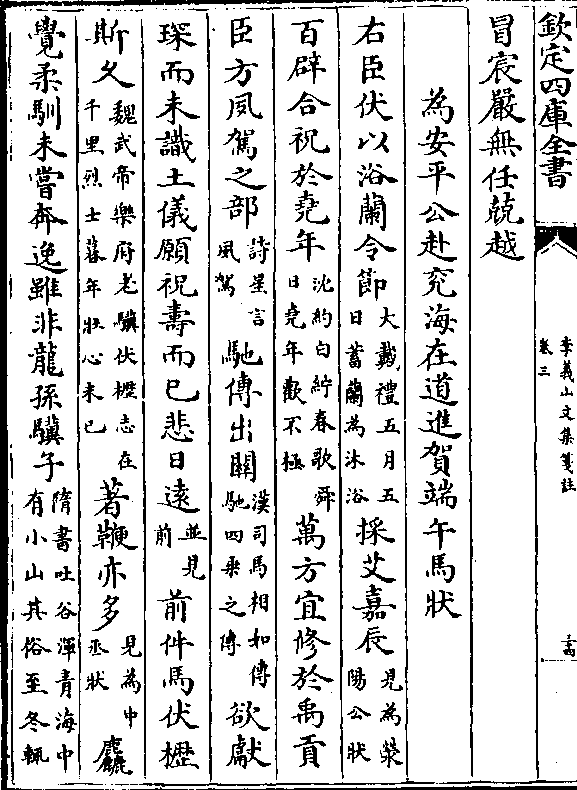 欽定四庫全書
李義山文集箋註
卷三
冒宸嚴無任兢越
為安平公赴兖海在道進賀端午馬狀
右臣伏以浴蘭令節大戴禮五月五日蓄蘭為沐浴採艾嘉辰見為滎陽公狀
百辟合祝於堯年沈約白紵春歌舜日堯年歡不極萬方宜修於禹貢
臣方夙駕之部詩星言夙駕馳傳出關漢司馬相如傳馳四乘之傳欲獻
琛而未識土儀願祝壽而已悲日遠並見前前件馬伏櫪
斯久魏武帝樂府老驥伏櫪志在千里烈士暮年壯心未已著鞭亦多見為中丞狀麤
覺柔馴未嘗奔逸雖非龍孫驥子隋書吐谷渾青海中有小山其俗至冬輒